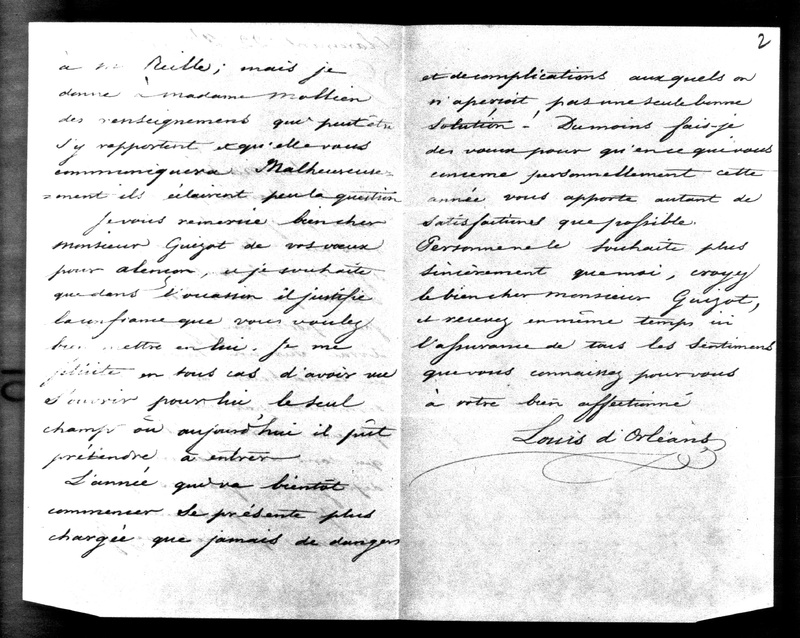 à Mr Reille; mais je
donne à Madame Mollien
des renseignements qui peut être
s'y rapportent et qu'elle vous
communiquera. Malheureuse=
=ment ils éclairent peu la question
Je vous remercie bien cher
Monsieur Guizot de vos vœux
pour alençon, et je souhaite
que dans l'occasion il justifie
la confiance que vous voulez
bien mettre en lui. Je me
félicite en tous cas d'avoir vu
s'ouvrir pour lui le seul
champ où aujourd'hui il pût
prétendre à entrer
L'année qui va bientôt
commencer se présente plus
chargée que jamais de dangers
2
et de complications auxquels on
n'aperçoit pas une seule bonne
solution! Du moins fais-je
des vœux pour qu'en ce qui vous
concerne personnellement cette
année vous apporte autant de
satisfactions que possible.
Personne ne le souhaite plus
sincèrement que moi, croyez
le bien cher Monsieur Guizot,
et recevez en même temps ici
l'assurance de tous les sentimens
que vous connaissez pour vous
à votre bien affectionné
Louis d'Orléans